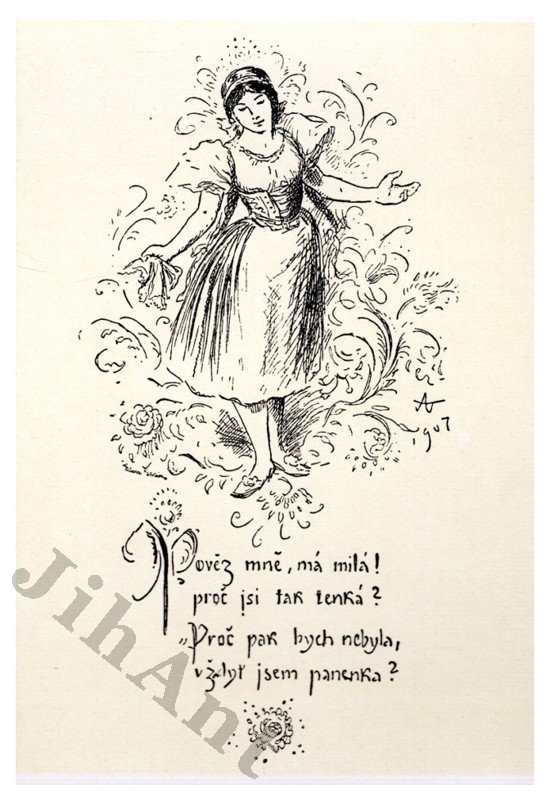 A
1907
Pověz mně, má milá!
proč jsi tak tenká?
„Proč pak bych nebyla,
vždyť jsem panenka?
JihAnt